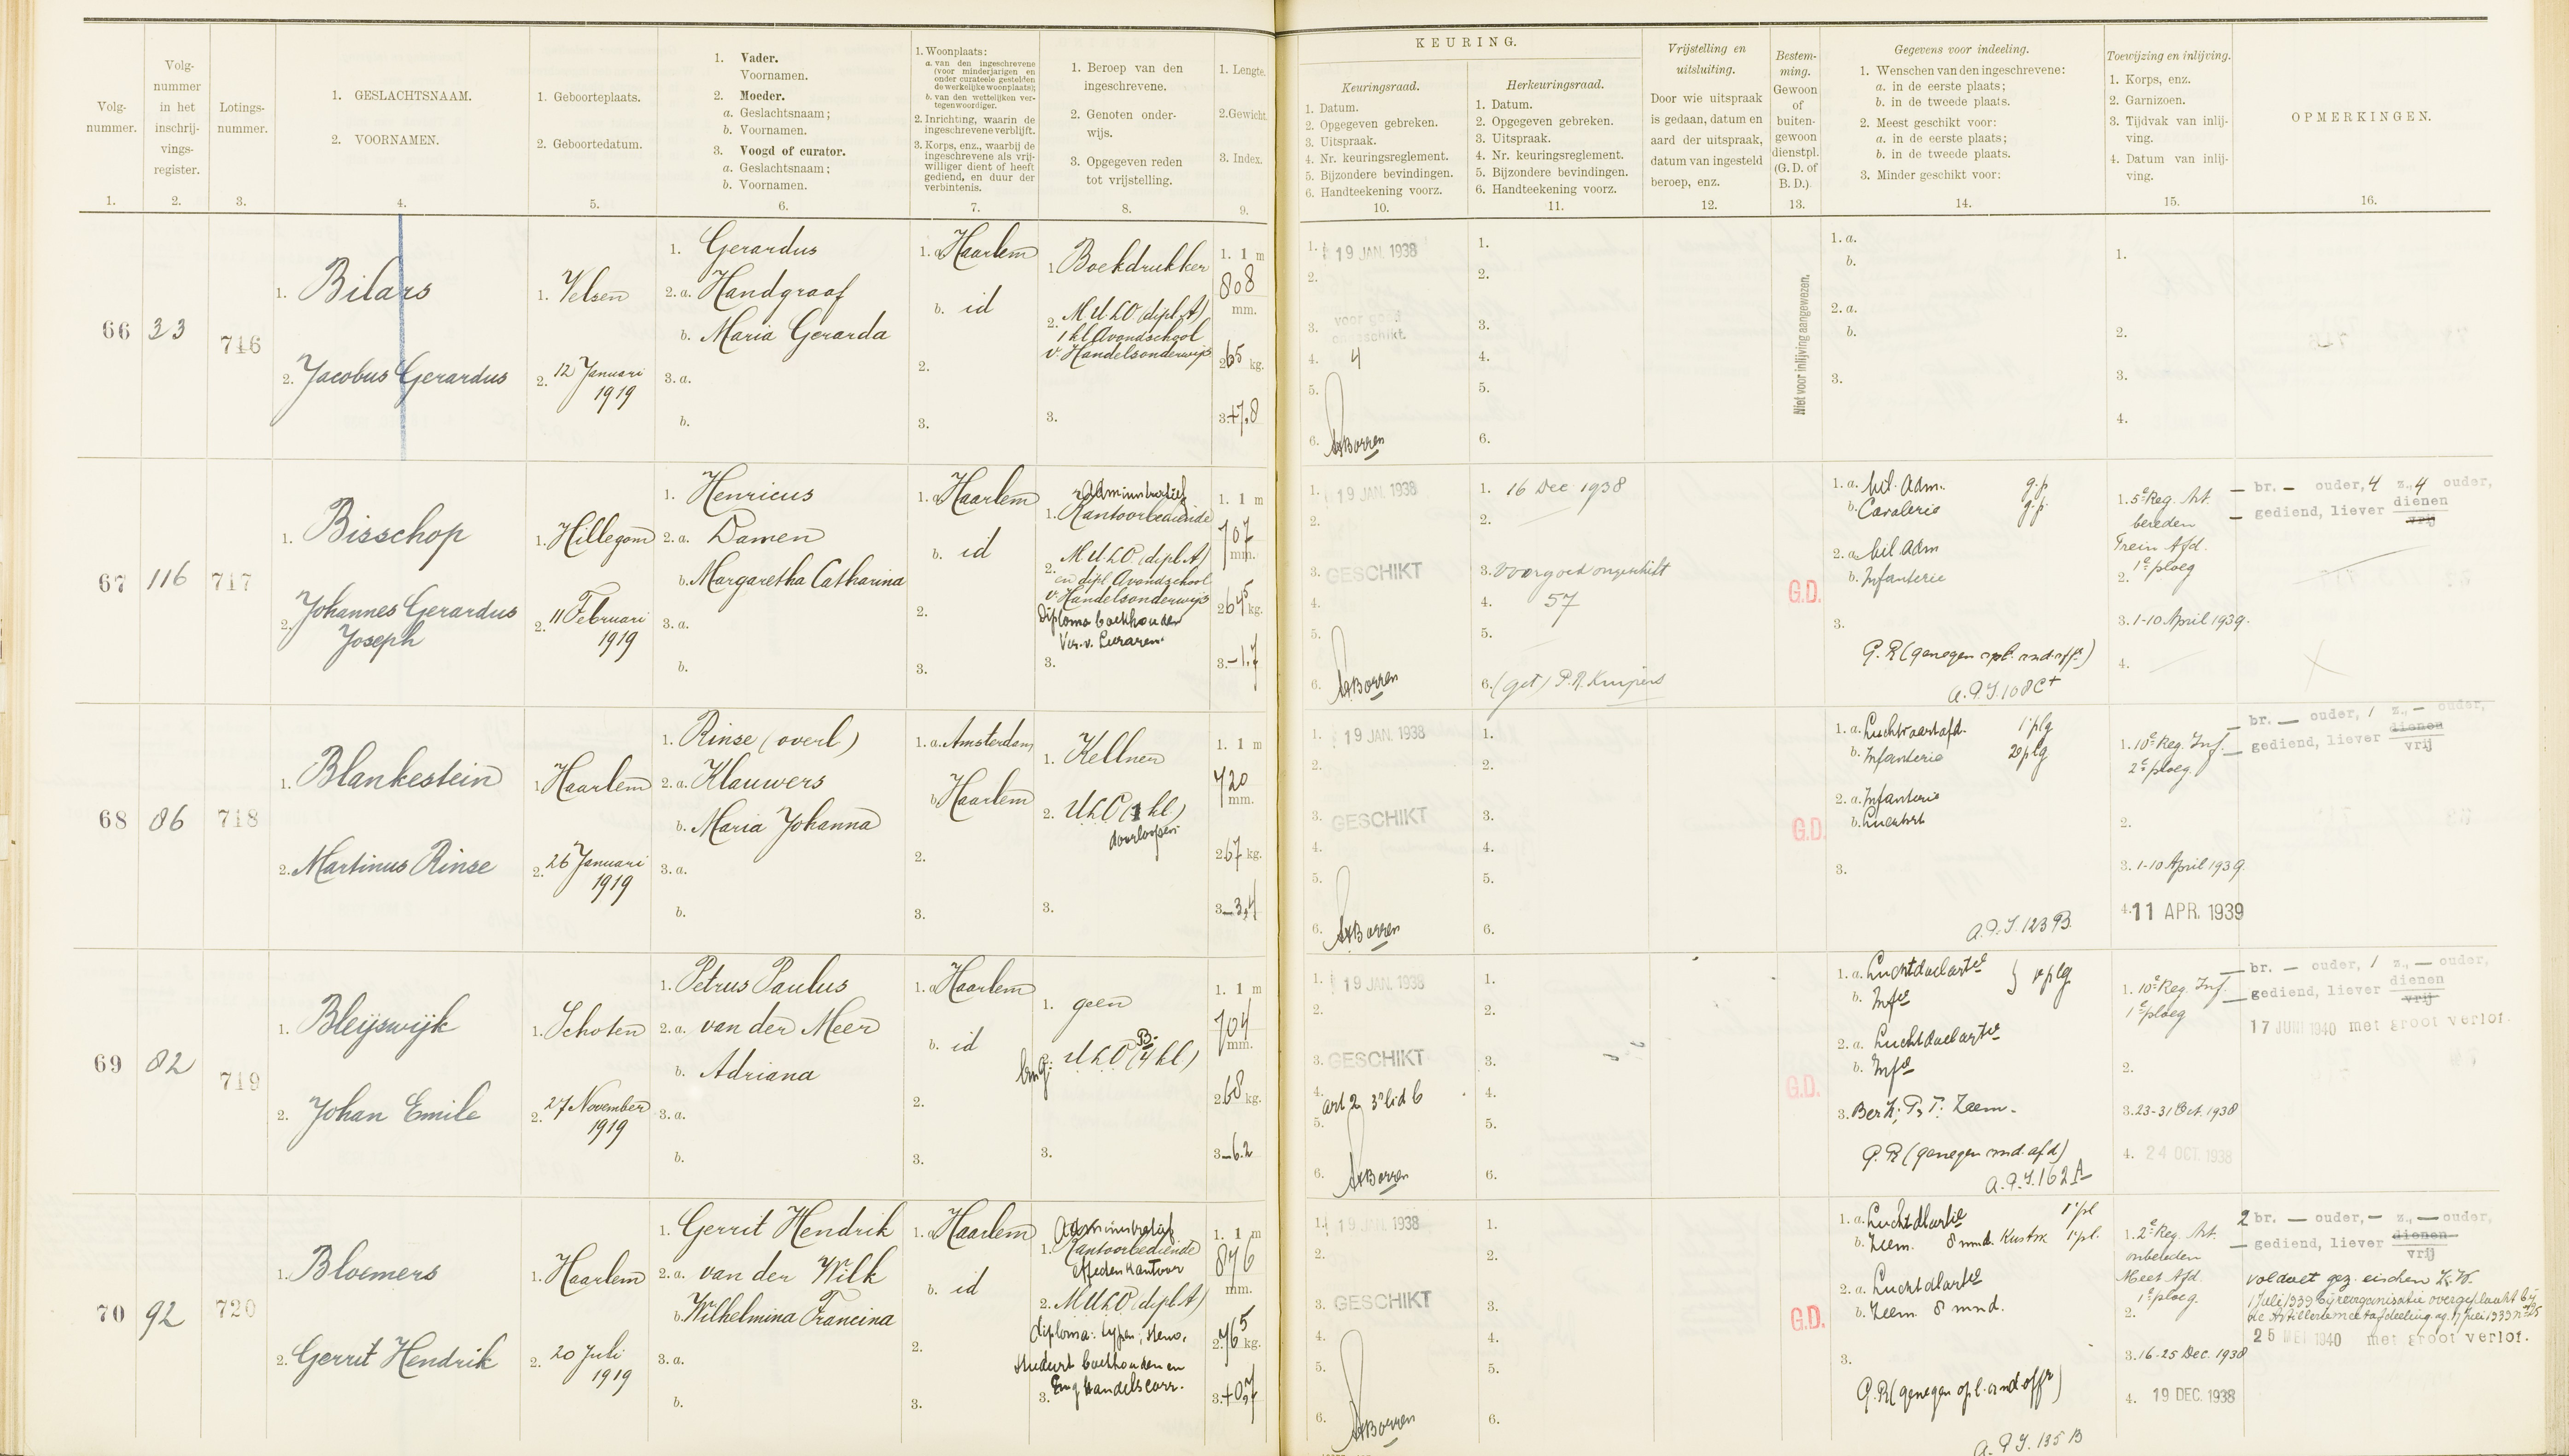 KEURING.
Volgnummer.
Volgnummer in het inschrijvingsregister.
Lotingsnummer.
1. GESLACHTSNAAM.
2. VOORNAMEN.
1. Geboorteplaats.
2. Geboortedatum.
1. Vader.
Voornamen.
2. Moeder.
a. Geslachtsnaam;
b. Voornamen.
3. Voogd of curator.
a. Geslachtsnaam;
b. Voornamen.
1. Woonplaats:
a. van den ingeschrevene
(voor minderjarigen en
onder curateele gestelden
de werkelijke woonplaats);
b. van den wettelijken ver-
tegenwoordiger.
2. Inrichting, waarin de
ingeschrevene verblijft.
3. Korps, enz., waarbij de
ingeschrevene als vrij-
williger dient of heeft
gediend, en duur der
verbintenis.
1. Beroep van den
ingeschrevene.
2. Genoten onder-
wijs.
3. Opgegeven reden
tot vrijstelling.
1. Lengte.
2. Gewicht.
3. Index.
Keuringsraad.
1. Datum.
2. Opgegeven gebreken.
3. Uitspraak.
4. Nr. keuringsreglement.
5. Bijzondere bevindingen.
6. Handteekening voorz.
Herkeuringsraad.
1. Datum.
2. Opgegeven gebreken.
3. Uitspraak.
4. Nr. keuringsreglement.
5. Bijzondere bevindingen.
6. Handteekening voorz.
Vrijstelling en
uitsluiting.
Door wie uitspraak
is gedaan, datum en
aard der uitspraak,
datum van ingesteld
beroep, enz.
Bestem-
ming.
Gewoon
of
buiten-
gewoon
dienstpl.
(G.D. of
B.D.)
Gegevens voor indeeling.
1. Wenschen van den ingeschrevene:
a. in de eerste plaats;
b. in de tweede plaats.
2. Meest geschikt voor:
a. in de eerste plaats;
b. in de tweede plaats.
3. Minder geschikt voor:
Toewijzing en inlijving.
1. Korps, enz.
2. Garnizoen.
3. Tijdvak van inlij-
ving.
4. Datum van inlij-
ving.
OPMERKINGEN.
1. 2. 3. 4. 5. 6. 7. 8. 9. 10. 11. 12. 13. 14. 15. 16.
66 33 716
1. Bilars
2. Jacobus Gerardus
1. Velsen
2. 12 Januari
1919
1. Gerardus
2. a. Handgraaf
b. Maria Gerarda
3. a.
b.
1. a. Haarlem
b. id
2.
3.
1. Boekdrukker
2. MULO (dipl. A)
1 kl Avondschool
v. Handelsonderwijs
3.
1. 1 m
808
mm.
2. 65 kg.
3. +7.8
1. 19 JAN. 1938
2.
3. voor goed
ongeschikt.
4. 4
5.
6.
Niet voor inlijving aangewezen.
67 116 717
1. Bisschop
2. Johannes Gerardus
Joseph
1. Hillegom
2. 11 Februari
1919
1. Henricus
2. a. Damen
b. Margaretha Catharina
3. a.
b.
1. a. Haarlem
b. id
2.
3.
Administratief
1. Kantoorbediende
2. MULO (dipl. A)
en dipl Avondschool
v. Handelsonderwijs
Diploma boekhouden
Ver. v. Leraren.
3.
1. 1 m
707
mm.
2. 64⁵ kg.
3. -1.7
1. 19 JAN. 1938
3. GESCHIKT
1. 16 Dec 1938
3. voorgoed ongeschikt
4. 57
6. (get) P.R. Kuijpers
G.D.
1. a. Mil. Adm. g.p.
b. Cavalerie g.p.
2. a. Mil. Adm
b. Infanterie
3.
G.R (genegen opl. ond. off.)
A.P.I. 108 C+
1. 5e Reg. Art.
bereden
Trein Afd.
1e ploeg
2.
3. 1-10 April 1939.
4.
— br. — ouder, 4 z., 4 ouder,
— gediend, liever dienen
vrij
68 86 718
1. Blankestein
2. Martinus Rinse
1. Haarlem
2. 26 Januari
1919
1. Rinse (overl)
2. a. Klauwers
b. Maria Johanna
3. a.
b.
1. a. Amsterdam
b. Haarlem
2.
3.
1. Kellner
2. ULO (1 kl.)
doorloopen
3.
1. 1 m
720
mm.
2. 67 kg.
3. -3,4
1. 19 JAN. 1938
3. GESCHIKT
G.D.
1. a. Luchtvaartafd. 1e plg
b. Infanterie 2e plg
2. a. Infanterie
b. Luchtvrt
3.
A.P.I. 123 B.
1. 10e Reg. Inf.
2e ploeg
2.
3. 1-10 April 1939.
4. 11 APR. 1939
— br. — ouder, 1 z., — ouder,
— gediend, liever dienen
vrij
69 82 719
1. Bleijswijk
2. Johan Emile
1. Schoten
2. 27 November
1919
1. Petrus Paulus
2. a. van der Meer
b. Adriana
3. a.
b.
1. a. Haarlem
b. id
2.
3.
1. geen
2. ULO (4 kl.)
3.
1. 1 m
704
mm.
2. 60 kg.
3. -6.2
1. 19 JAN. 1938
3. GESCHIKT
4. art 2, 3e lid b
G.D.
1. a. Luchtdoelartie } 1e plg.
b. Infie
2. a. Luchtdoelartie
b. Infie
3.
G.R (genegen ond. afd)
A.P.I. 162 A-
1. 10e Reg. Inf.
1e ploeg
2.
3. 23-31 Oct. 1938
4. 24 OCT. 1938
— br. — ouder, 1 z., — ouder,
— gediend, liever dienen
vrij
17 JUNI 1940 met groot verlof.
70 92 720
1. Bloemers
2. Gerrit Hendrik
1. Haarlem
2. 20 Juli
1919
1. Gerrit Hendrik
2. a. van der Wilk
b. Wilhelmina Francina
3. a.
b.
1. a. Haarlem
b. id
2.
3.
Administratief
1. Kantoorbediende
effectenkantoor
2. MULO (dipl. A)
diploma: typen, steno,
studeert boekhouden en
Eng handelscorr.
3.
1. 1 m
876
mm.
2. 76⁵ kg.
3. +0,7
1. 19 JAN. 1938
3. GESCHIKT
G.D.
1. a. Luchtdlartie 1e pl
b. Zeem. 8 mnd. Kustw 1e pl.
2. a. Luchtdlartie
b. Zeem. 8 mnd.
3.
G.R (genegen opl. ond. offr)
A.P.I. 135 B
1. 2e Reg. Art.
onbereden
Meet Afd.
1e ploeg.
2.
3. 16-25 Dec. 1938
4. 19 DEC. 1938
2 br. — ouder, — z., — ouder,
— gediend, liever dienen
vrij
voldoet gez. eischen K.W.
1 Juli 1939 bij reorganisatie overgeplaatst bij
de Artilleriemeetafdeeling
25 MEI 1940 met groot verlof.